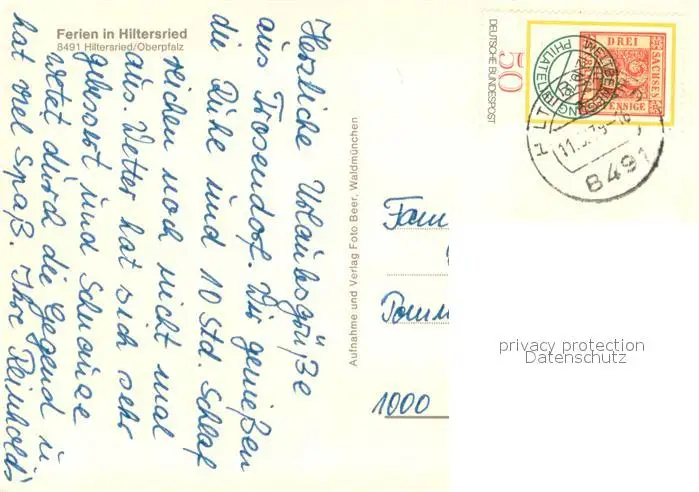 Ferien in Hiltersried
8491 Hiltersried/Oberpfalz
Herzliche Urlaubsgrüße
aus Trosendorf. Wir genießen
die Ruhe und 10 Std. Schlaf
reichen noch nicht mal
aus. Wetter hat sich sehr
gebessert und Schnauze
wetzt durch die Gegend u.
hat viel Spaß. Ihre Reinholds
Aufnahme und Verlag Foto Beer, Waldmünchen
DEUTSCHE BUNDESPOST
50
DREI
PFENNIGE
SACHSEN
8491
Fam
1000
privacy protection
Datenschutz